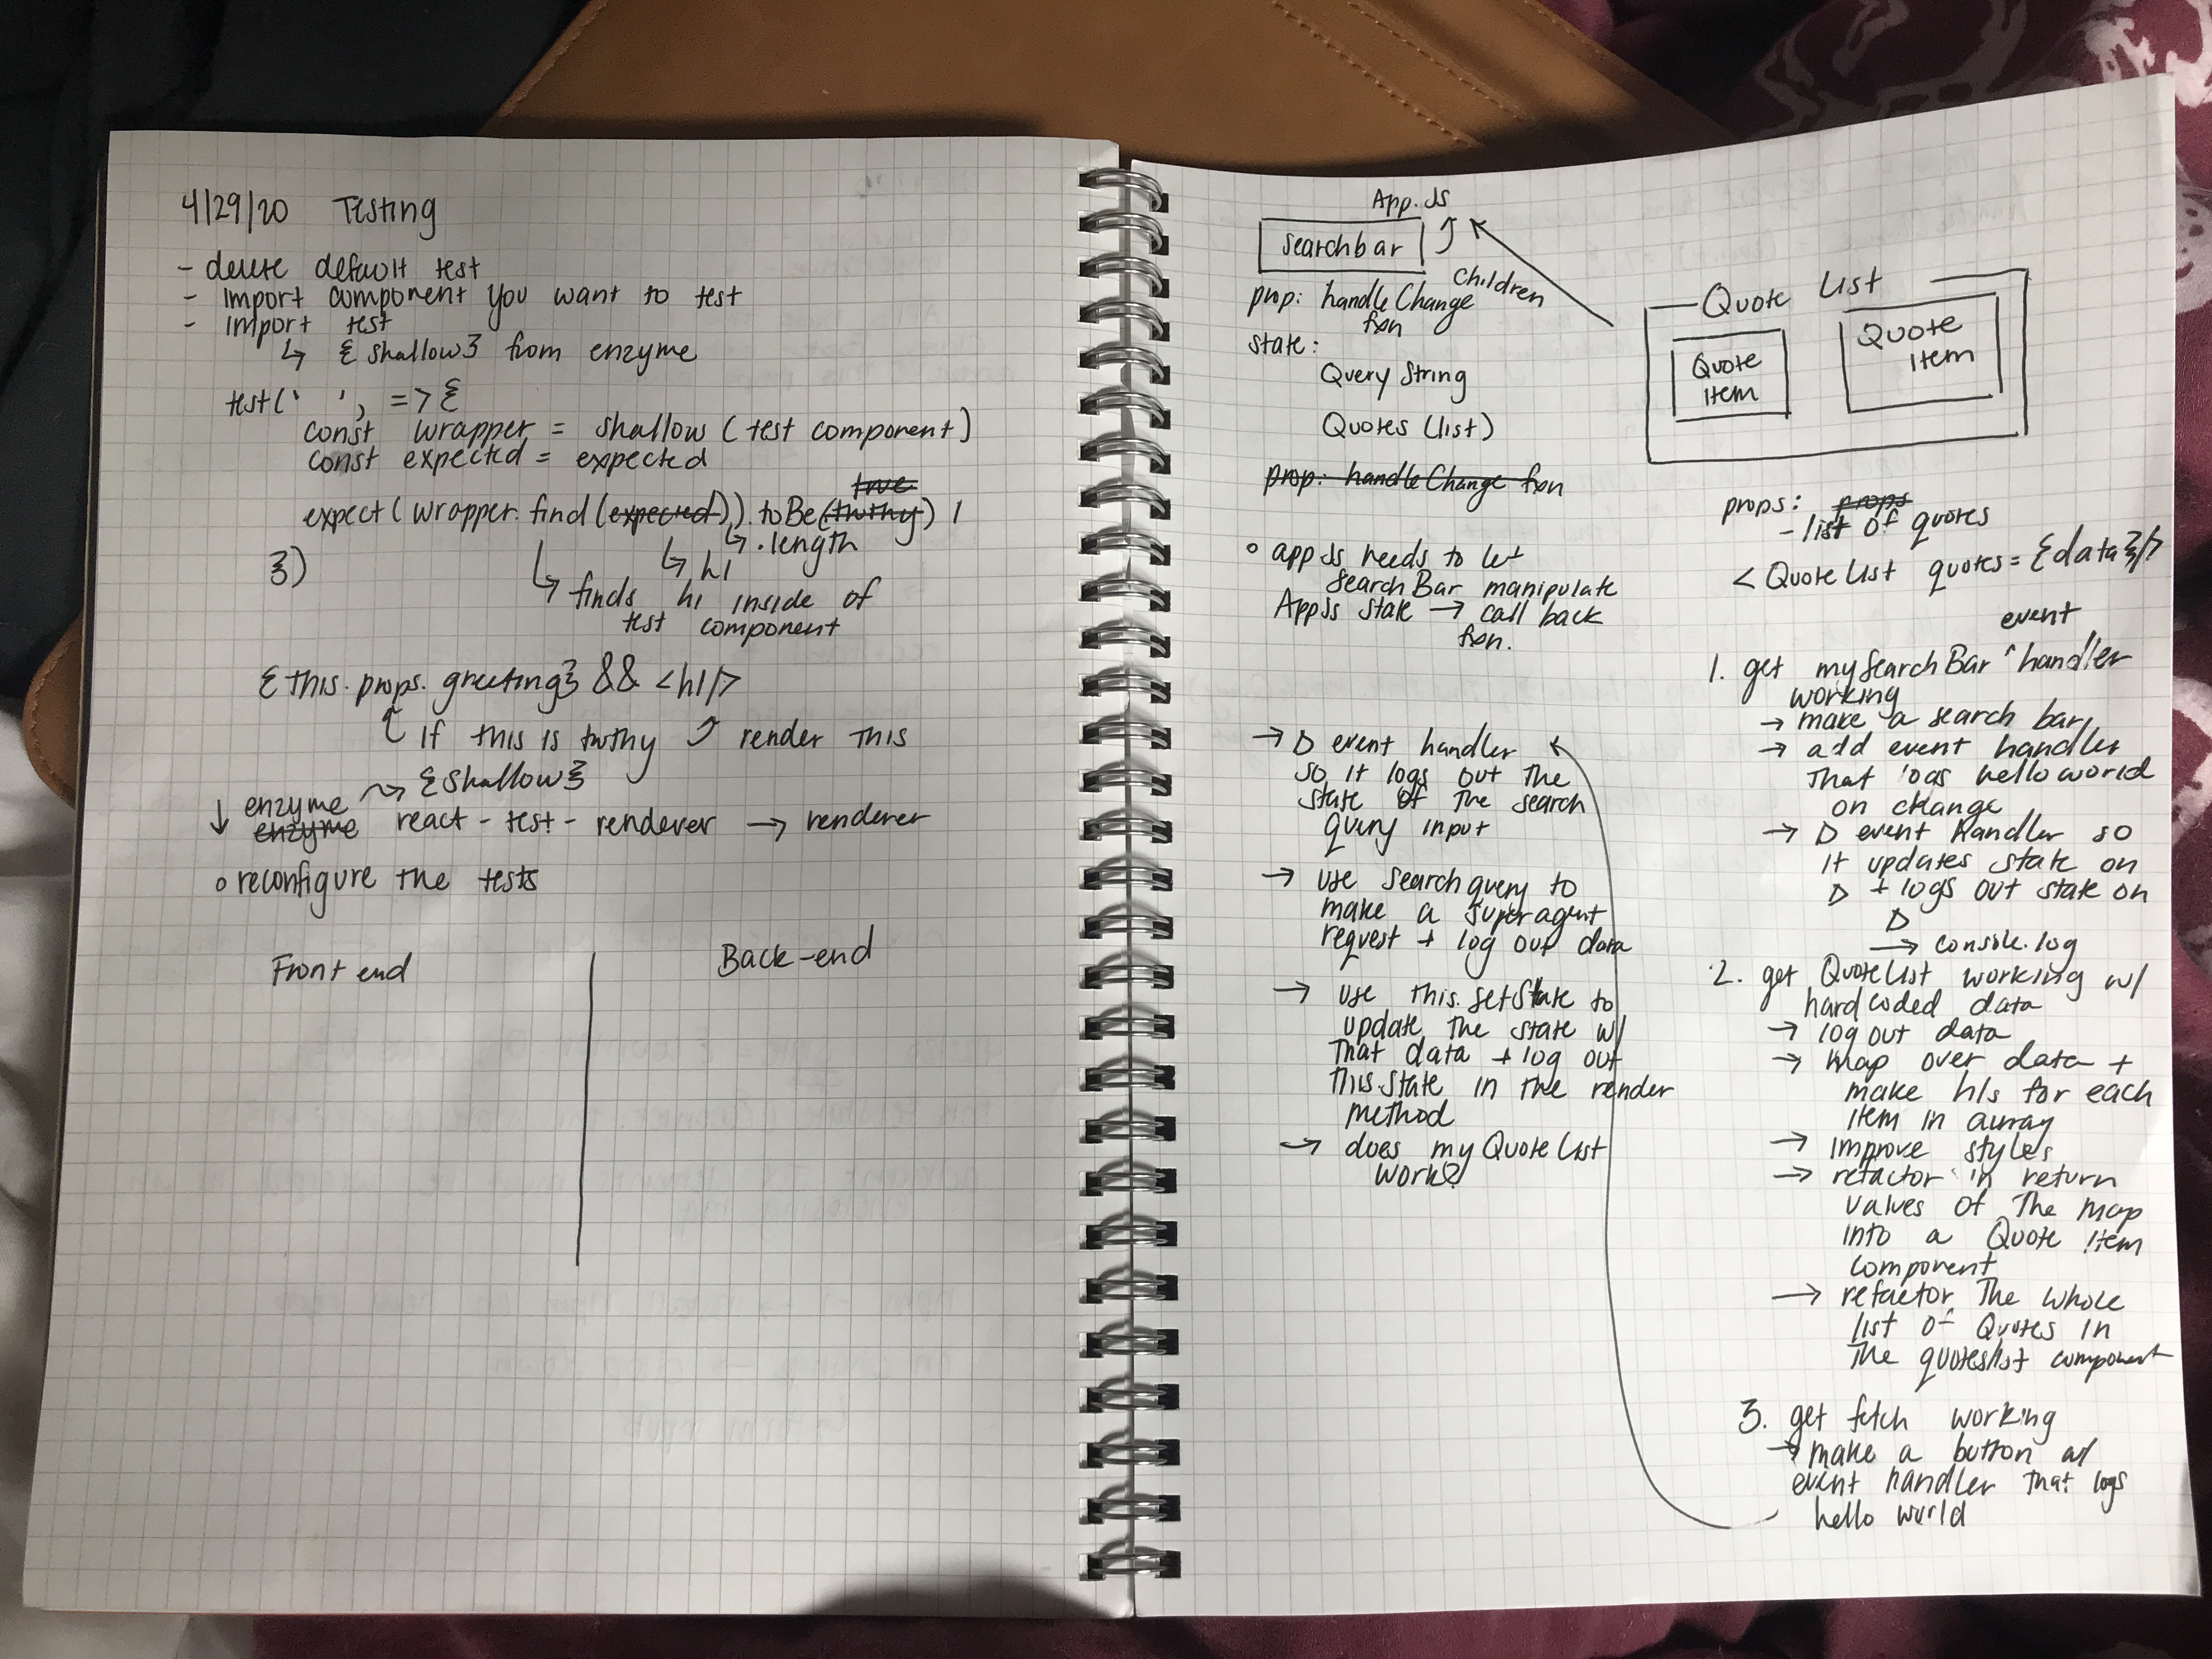 4/29/20 Testing
- delete default test
- import component you want to test
- import test
↳ { shallow } from enzyme
test(' ', => {
const wrapper = shallow (test component)
const expected = expected
expect (wrapper.find(expected)).toBe(truthy) 1
true
↳ .length
↳ h1
})
↳ finds h1 inside of
test component
{this.props.greeting} && <h1/>
↳ if this is truthy ↗ render this
enzyme ~> {shallow}
↓ enzyme react-test-renderer → renderer
o reconfigure the tests
Front end
Back-end
App.js
Searchbar
prop: handleChange
fxn
children
state:
Query string
Quotes (list)
prop: handleChange fxn
o app.js needs to let
SearchBar manipulate
App.js state → call back
fxn.
→ Δ event handler
so it logs out the
state of the search
query input
→ use searchquery to
make a superagent
request + log out data
→ use this.setState to
update the state w/
that data + log out
this.state in the render
method
→ does my QuoteList
work?
Quote List
Quote
item
Quote
item
props: props
- list of quotes
< QuoteList quotes = {data}/>
event
1. get my SearchBar ^ handler
working
→ make a search bar
→ add event handler
that logs hello world
on change
→ Δ event handler so
it updates state on
Δ + logs out state on
Δ
→ console.log
2. get QuoteList working w/
hard coded data
→ log out data
→ Map over data +
make h1s for each
item in array
→ improve styles
→ refactor in return
values of the map
into a Quote item
component
→ refactor the whole
list of Quotes in
the quoteslist component
3. get fetch working
→ make a button w/
event handler that logs
hello world